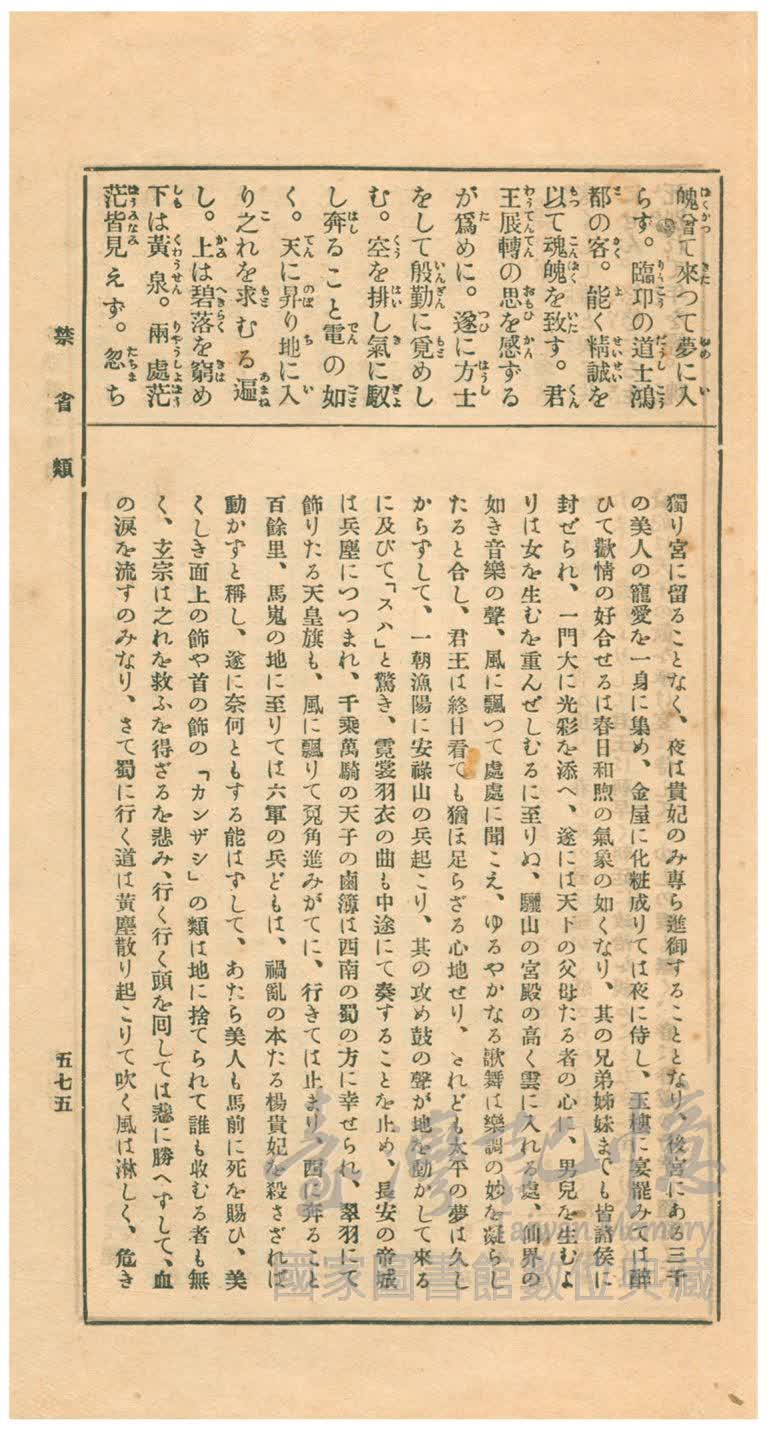 魄曾て來つて夢に入
らず。臨邛の道士鴻
都の客。能く精誠を
以て魂魄を致す。君
王展轉の思を感ずる
が爲めに。遂に方士
をして殷勤に覓めし
む。空を排し氣に馭
し奔ること電の如
く。天に昇り地に入
り之れを求むる遍
し。上は碧落を窮め
下は黃泉。兩處茫
茫皆見えず。忽ち
獨り宮に留ることなく、夜は貴妃のみ專ら進御することとなり、後宮にある三千
の美人の寵愛を一身に集め、金屋に化粧成りては夜に侍し、玉樓に宴罷みては醉
ひて歡情の好合せるは春日和煦の氣象の如くなり、其の兄弟姊妹までも皆諸侯に
封ぜられ、一門大に光彩を添へ、遂には天下の父母たる者の心に、男兒を生むよ
りは女を生むを重んぜしむるに至りぬ、驪山の宮殿の高く雲に入れる處、仙界の
如き音樂の聲、風に飄つて處處に聞こえ、ゆるやかなる歌舞は樂調の妙を凝らし
たると合し、君王は終日看ても猶ほ足らざる心地せり、されども太平の夢は久し
からずして、一朝漁陽に安祿山の兵起こり、其の攻め鼓の聲が地を動かして來る
に及びて「スハ」と驚き、霓裳羽衣の曲も中途にて奏することを止め、長安の帝城
は兵塵につつまれ、千乘萬騎の天子の鹵簿は西南の蜀の方に幸せられ、翠羽にて
飾りたる天皇旗も、風に飄りて兎角進みがてに、行きては止まり、西に奔ること
百餘里、馬嵬の地に至りては六軍の兵どもは、禍亂の本たる楊貴妃を殺さざれば
動かずと稱し、遂に奈何ともする能はずして、あたら美人も馬前に死を賜ひ、美
くしき面上の飾や首の飾の「カンザシ」の類は地に捨てられて誰も收むる者も無
く、玄宗は之れを救ふを得ざるを悲み、行く行く頭を回しては悲に勝へずして、血
の淚を流すのみなり、さて蜀に行く道は黃塵散り起こりて吹く風は淋しく、危き
禁省類
五七五
臺灣記憶
Taiwan Memory
國家圖書館數位典藏